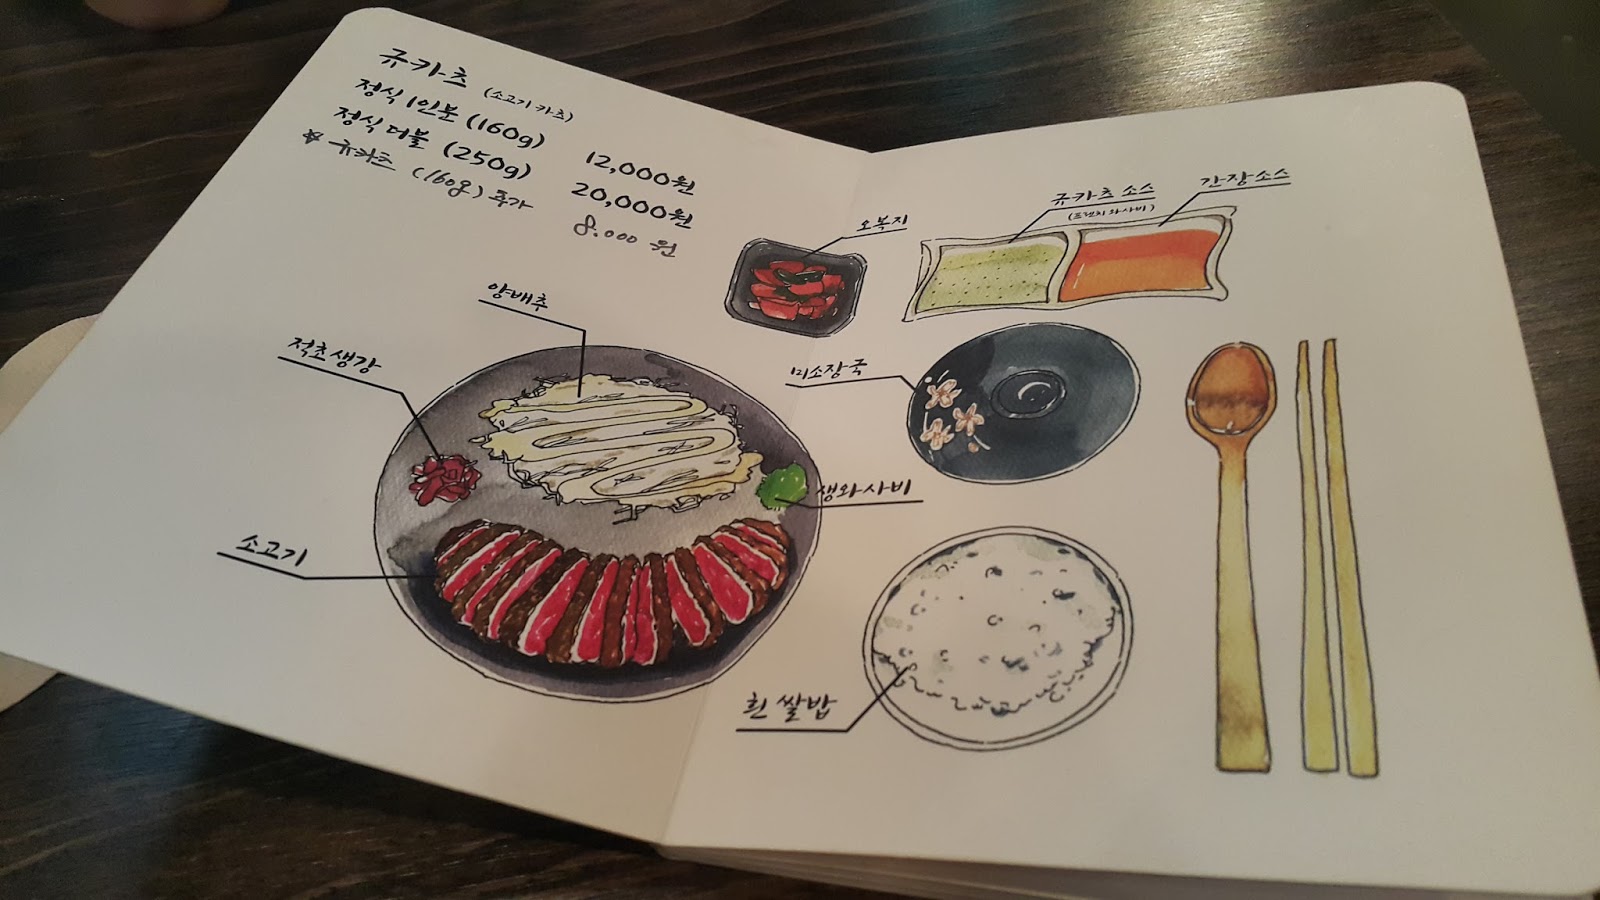 규카츠 (소고기 카츠)
정식 1인분 (160g) 12,000원
정식 더블 (250g) 20,000원
* 규카츠 (160g) 추가 8.000 원
양배추
적초생강
소고기
생와사비
오복지
규카츠 소스
(프렌치 와사비)
간장소스
미소장국
흰 쌀밥